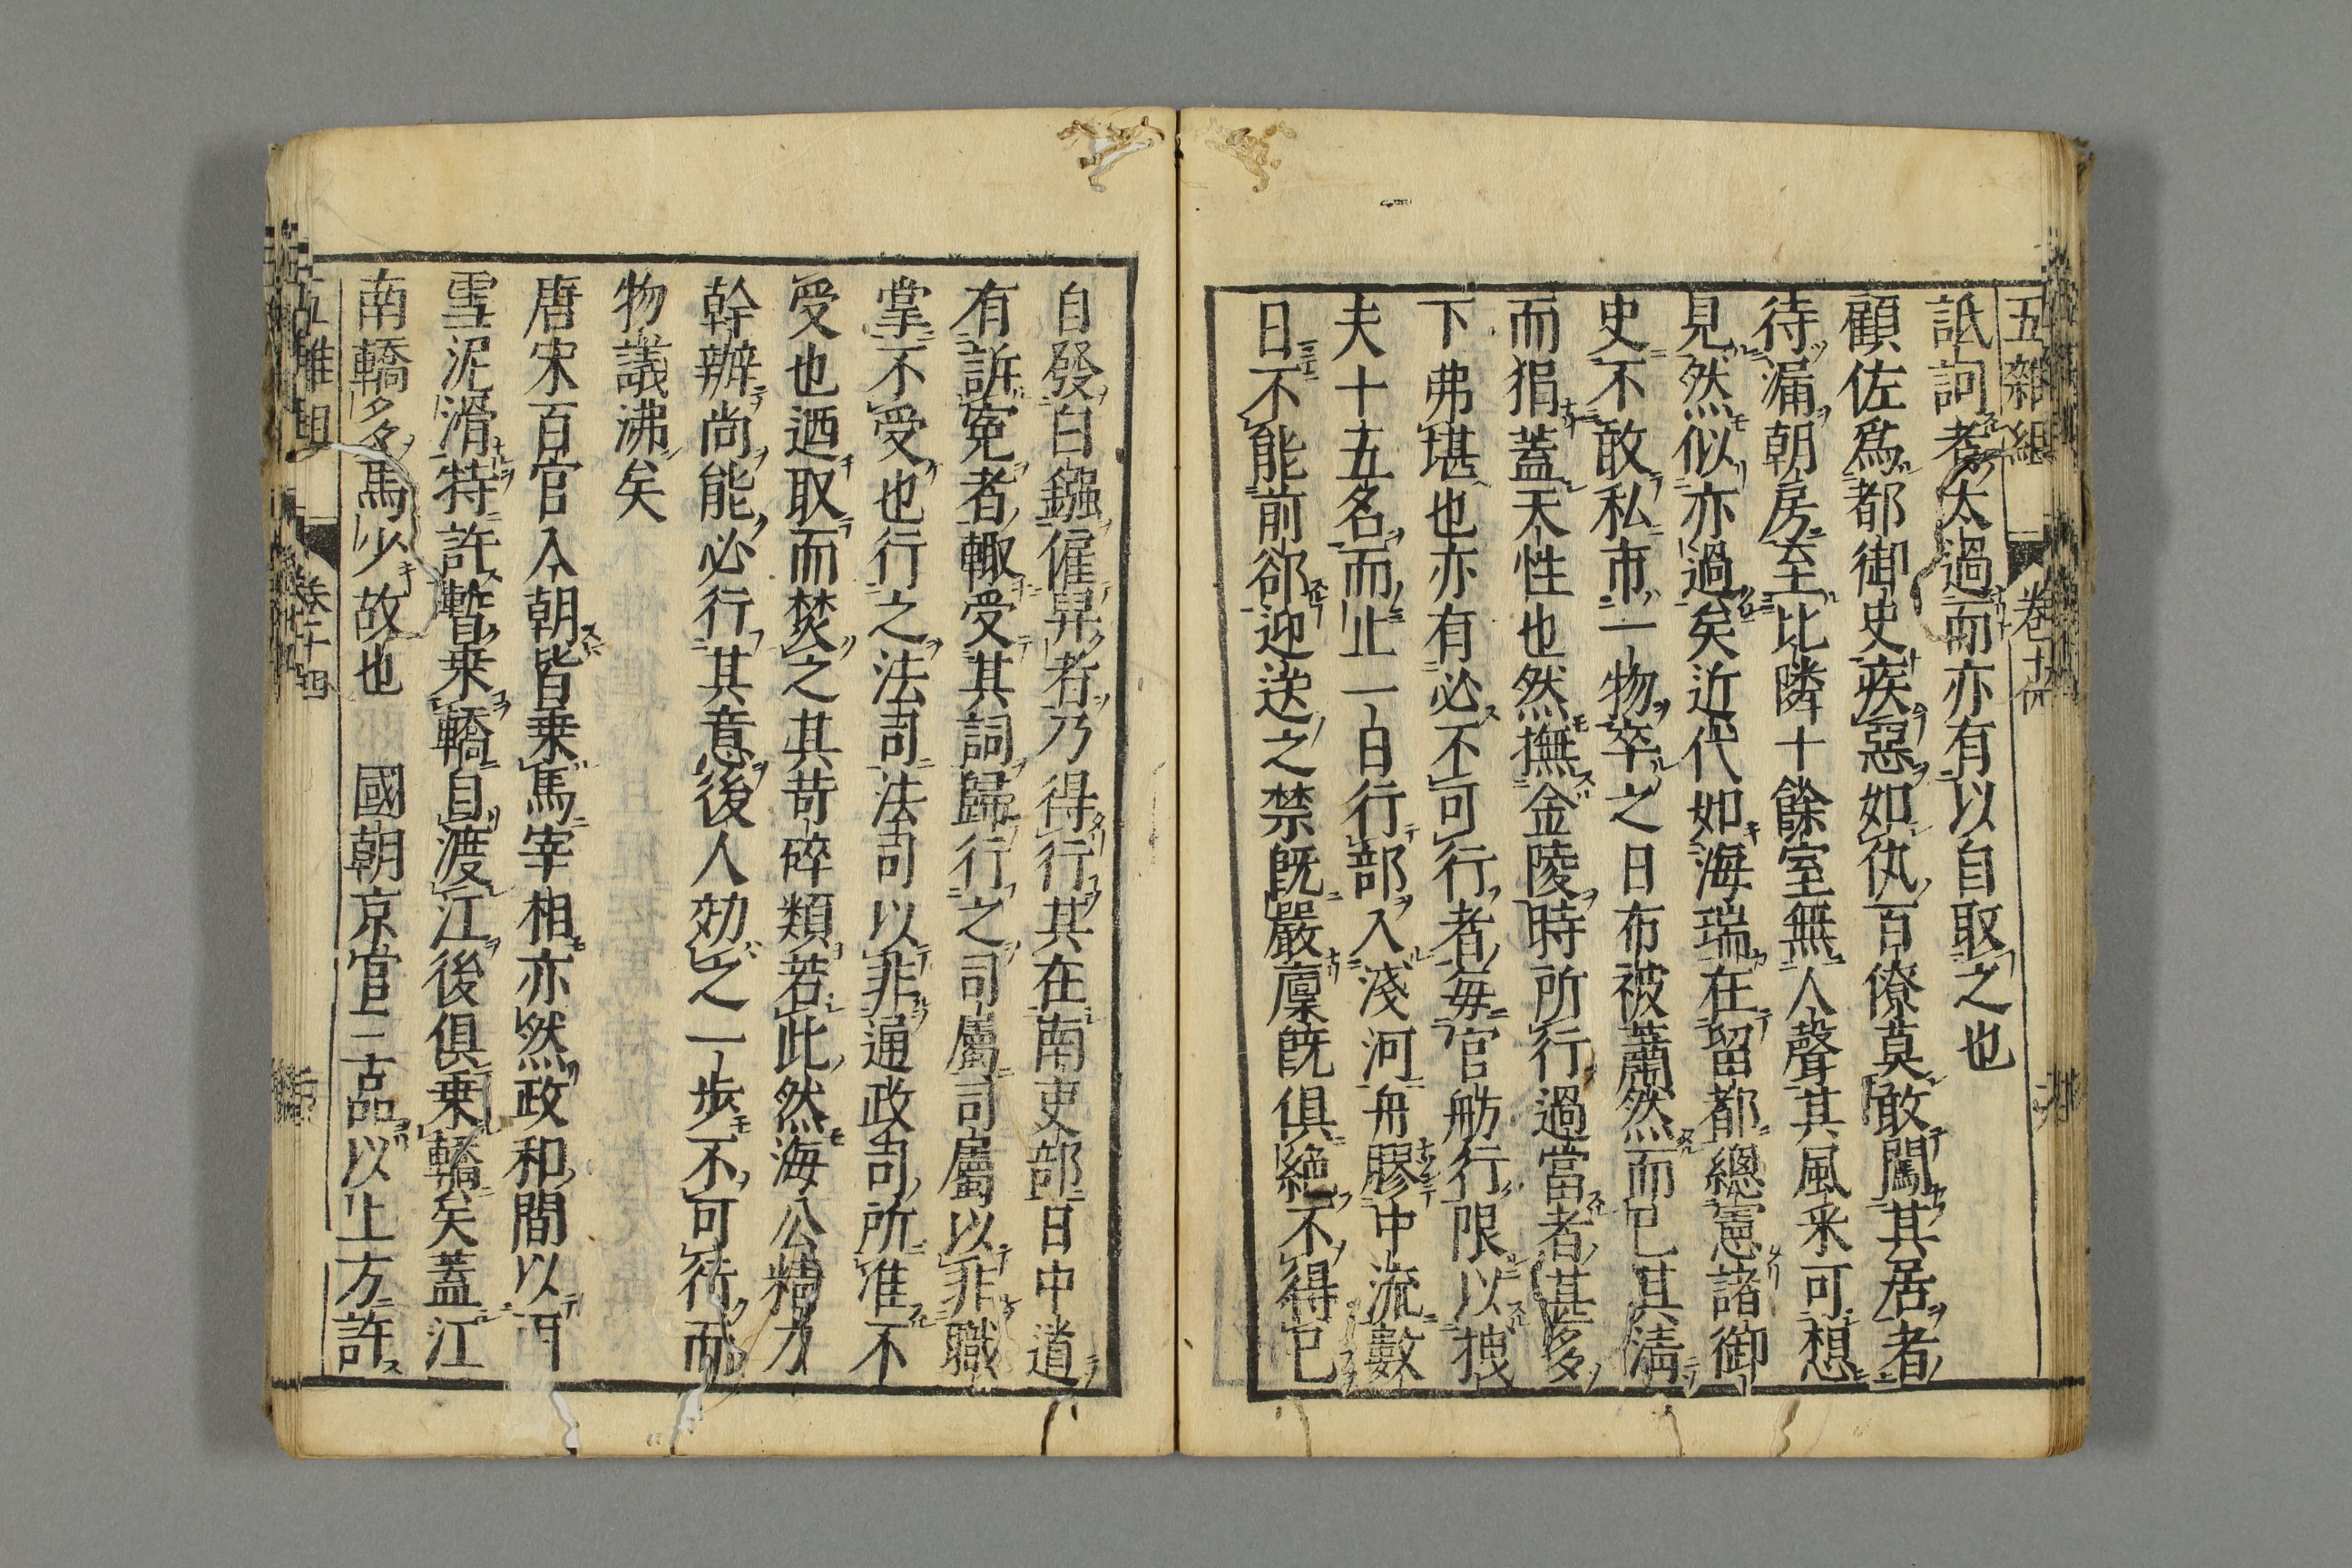 五雜組 卷十四
詆訶者太過而亦有以自取之也
顧佐爲都御史疾惡如仇百僚莫敢闖其居者
待漏朝房至比隣十餘室無人聲其風采可想
見然似亦過矣近代如海瑞在留都總憲諸御
史不敢私市一物卒之日布被蕭然而已其清
而狷蓋天性也然撫金陵時所行過當者甚多
下弗堪也亦有必不可行者每官舫行限以拽
夫十五名而止一日行部入淺河舟膠中流數
日不能前郤迎送之禁既嚴廩既俱絶不得已
自發白鏹僱舁者乃得行其在南吏部日中道
有訴寃者輙受其詞歸行之司屬司屬以非職
掌不受也行之法司法司以非通政司所准不
受也廼取而焚之其苛碎類若此然海公精力
幹辦尚能必行其意後人効之一步不可行而
物議沸矣
唐宋百官入朝皆乗馬宰相亦然政和間以雨
雪泥滑特許暫乗轎自渡江後俱乗轎矣蓋江
南轎多馬少故也 國朝京官三品以上方許
五雜組 卷十四